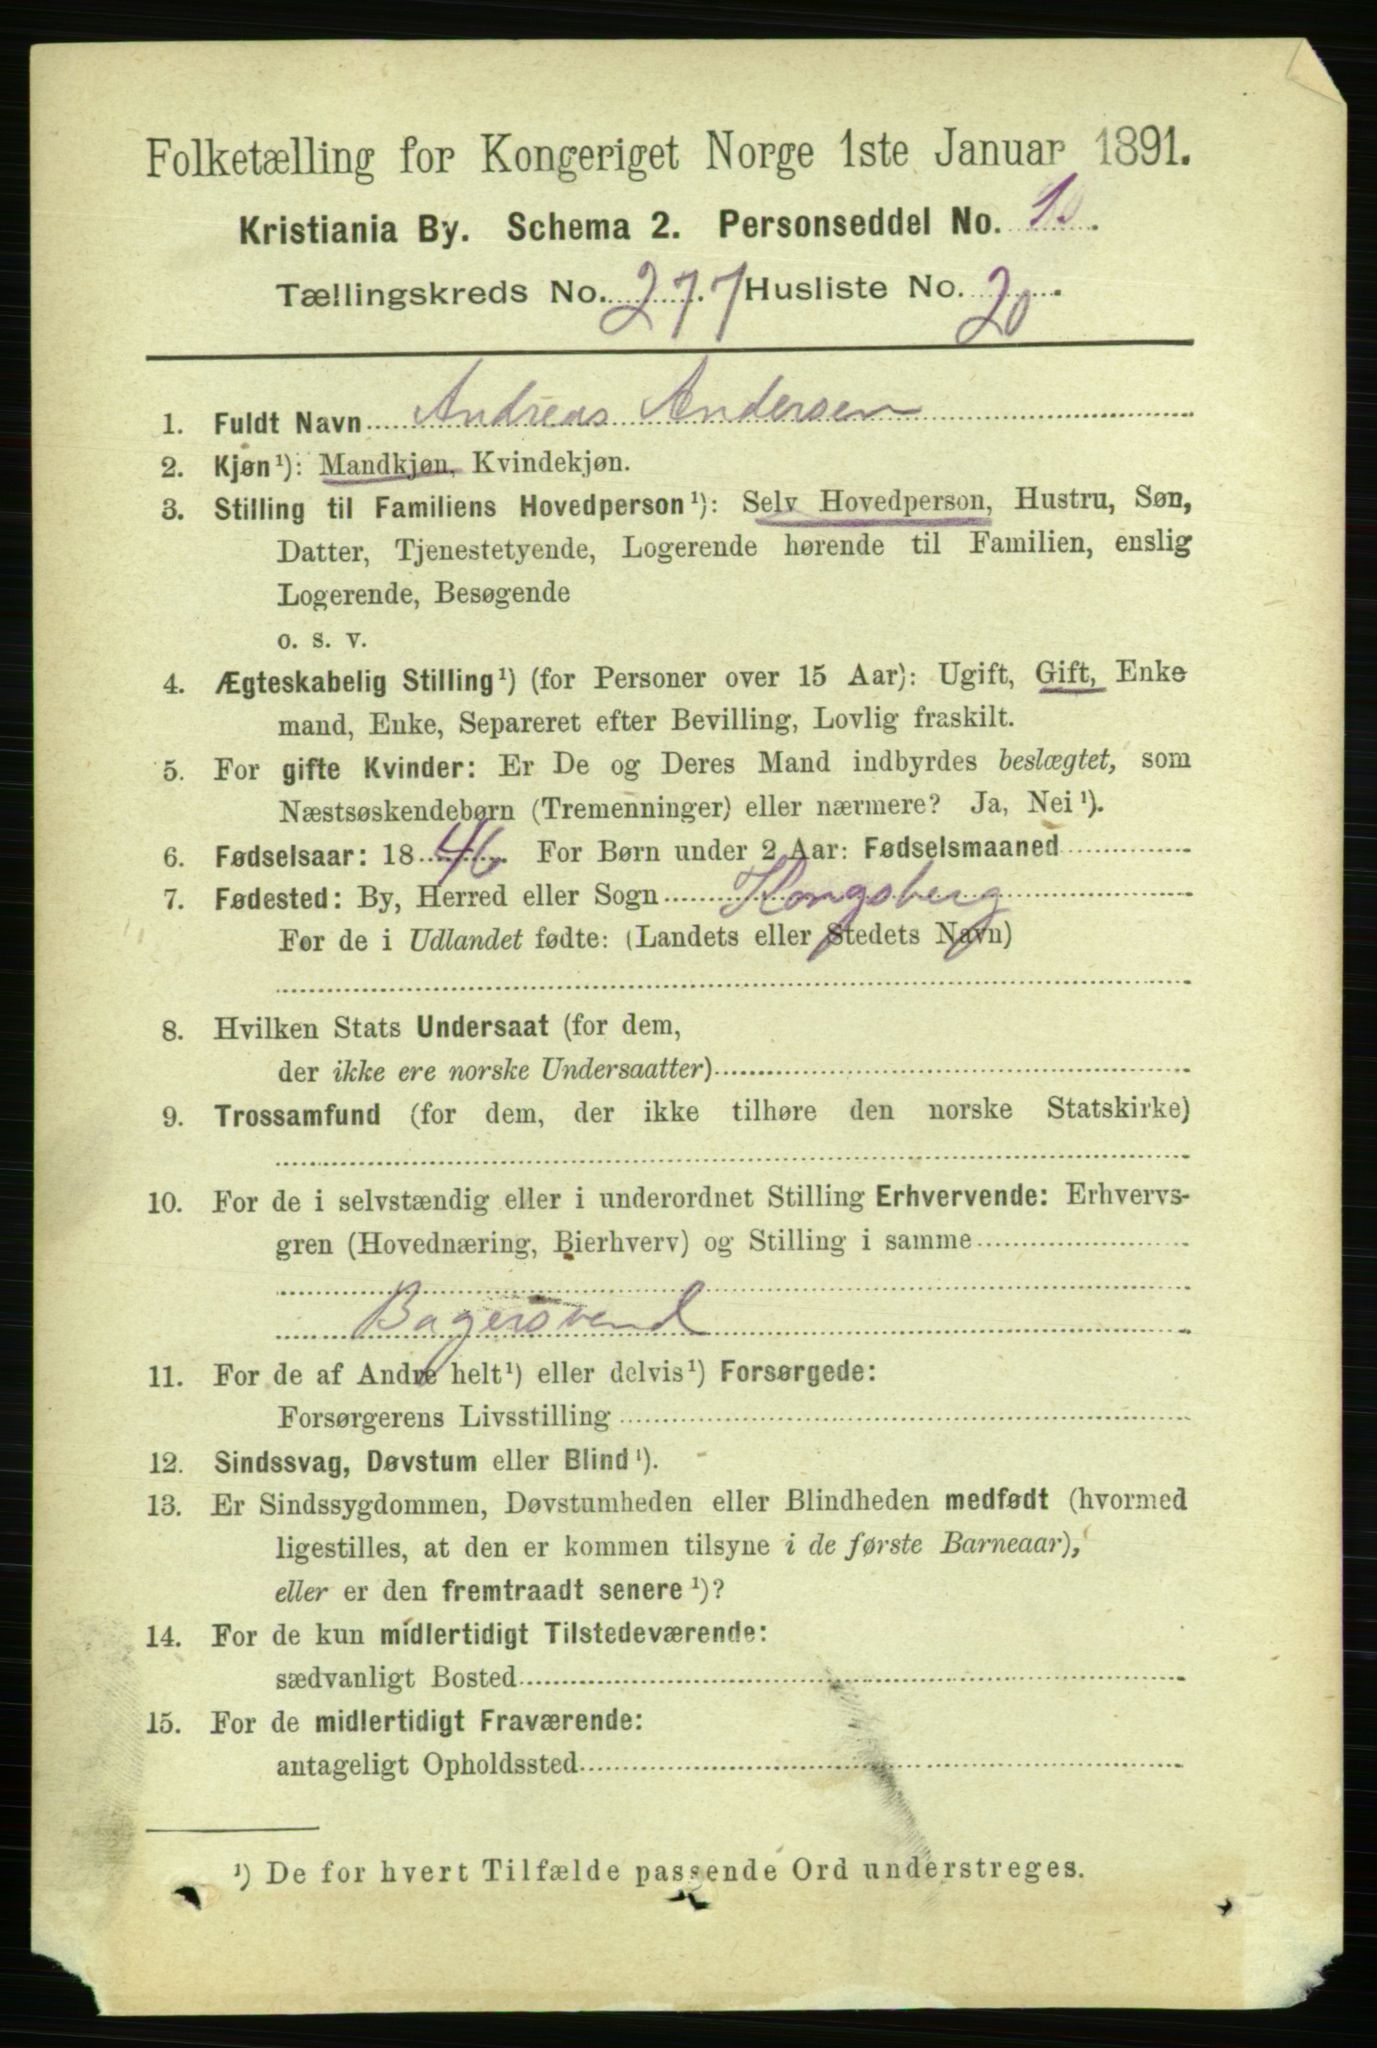 Folketælling for Kongeriget Norge 1ste Januar 1891.
Kristiania By. Schema 2. Personseddel No. 10.
Tællingskreds No. 277. Husliste No. 20.
1. Fuldt Navn Andreas Andersen
2. Kjøn¹): Mandkjøn, Kvindekjøn.
3. Stilling til Familiens Hovedperson¹): Selv Hovedperson, Hustru, Søn,
Datter, Tjenestetyende, Logerende hørende til Familien, enslig
Logerende, Besøgende
o. s. v.
4. Ægteskabelig Stilling¹) (for Personer over 15 Aar): Ugift, Gift, Enke
mand, Enke, Separeret efter Bevilling, Lovlig fraskilt.
5. For gifte Kvinder: Er De og Deres Mand indbyrdes beslægtet, som
Næstsøskendebørn (Tremenninger) eller nærmere? Ja, Nei¹).
6. Fødselsaar: 1846. For Børn under 2 Aar: Fødselsmaaned
7. Fødested: By, Herred eller Sogn Kongsberg
For de i Udlandet fødte: (Landets eller Stedets Navn)
8. Hvilken Stats Undersaat (for dem,
der ikke ere norske Undersaatter)
9. Trossamfund (for dem, der ikke tilhøre den norske Statskirke)
10. For de i selvstændig eller i underordnet Stilling Erhvervende: Erhvervs-
gren (Hovednæring, Bierhverv) og Stilling i samme
Bagersvend
11. For de af Andre helt¹) eller delvis¹) Forsørgede:
Forsørgerens Livsstilling
12. Sindssvag, Døvstum eller Blind¹).
13. Er Sindssygdommen, Døvstumheden eller Blindheden medfødt (hvormed
ligestilles, at den er kommen tilsyne i de første Barneaar),
eller er den fremtraadt senere¹)?
14. For de kun midlertidigt Tilstedeværende:
sædvanligt Bosted
15. For de midlertidigt Fraværende:
antageligt Opholdssted
¹) De for hvert Tilfælde passende Ord understreges.